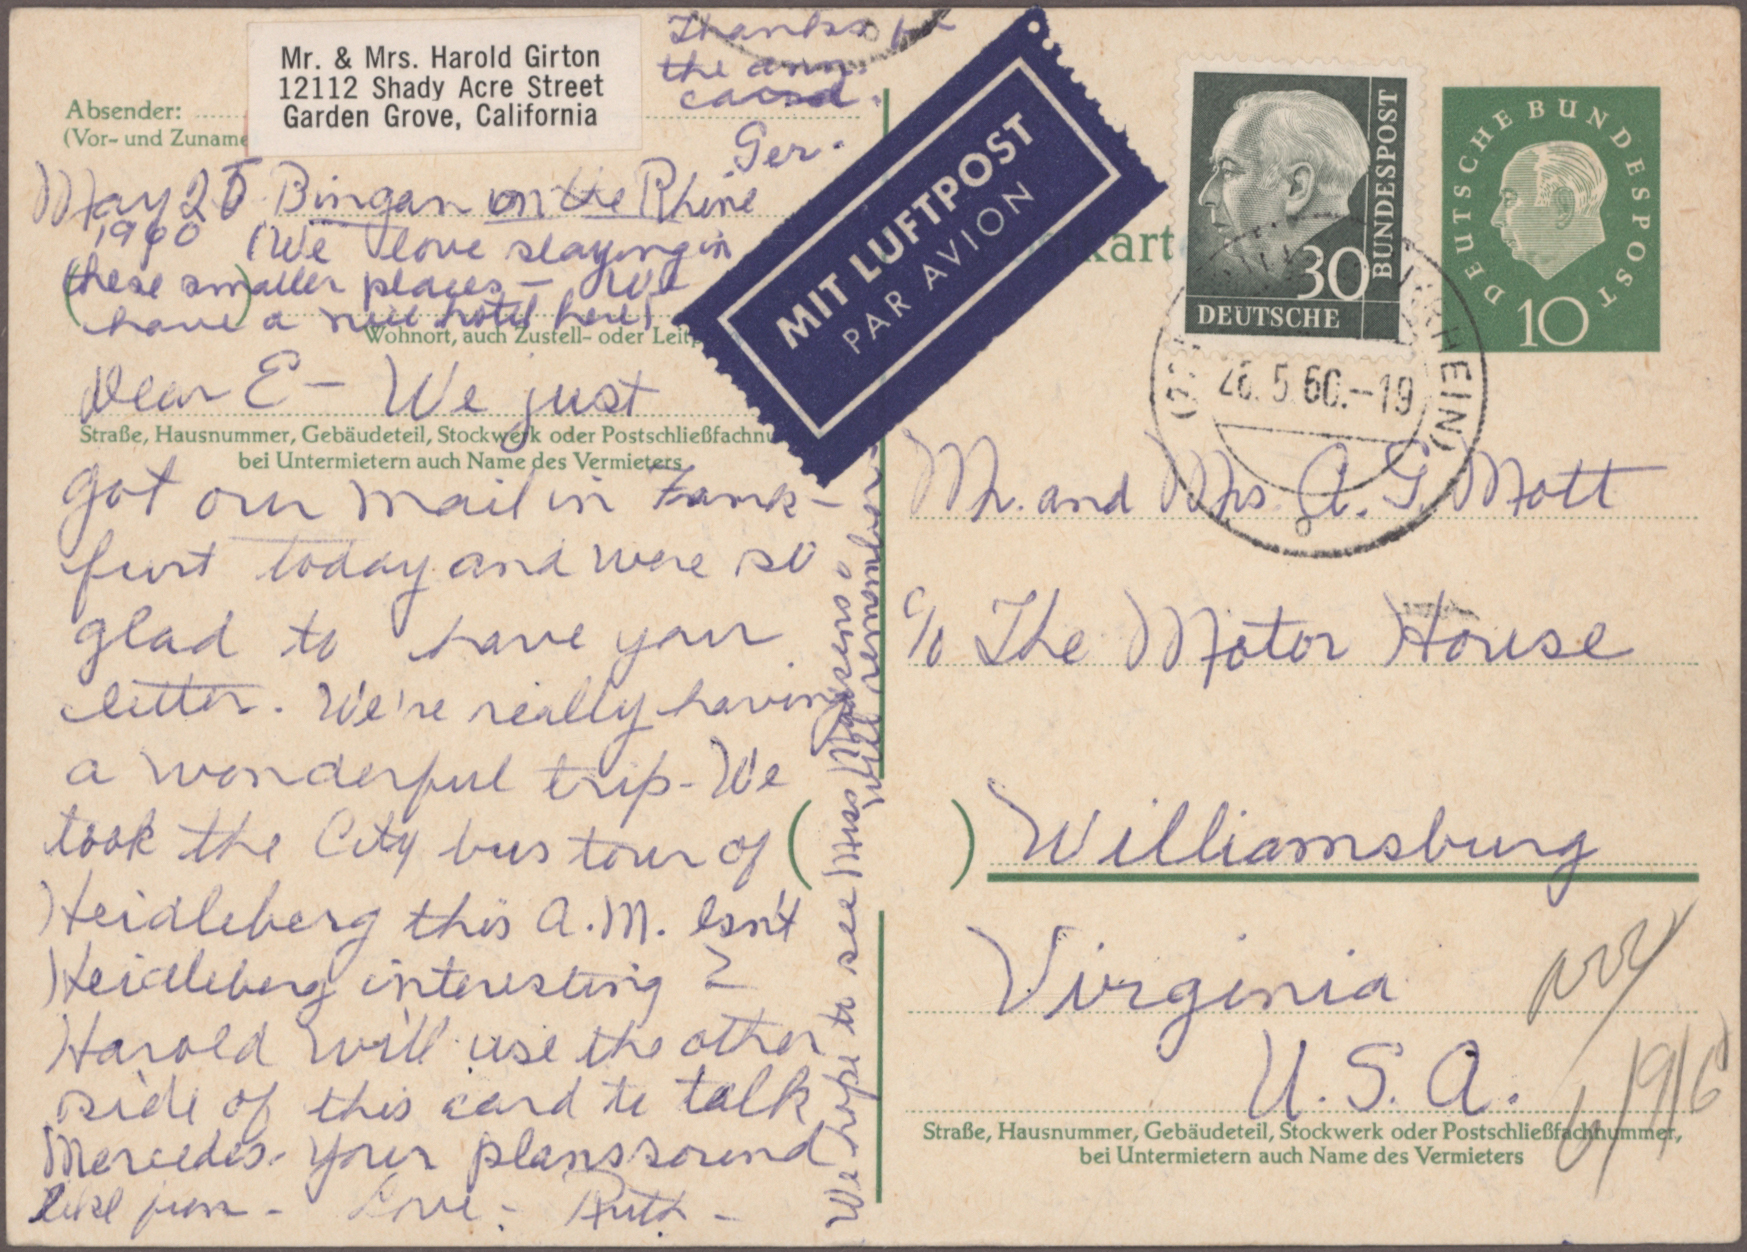 Mr. & Mrs. Harold Girton
12112 Shady Acre Street
Garden Grove, California
Absender:
(Vor- und Zuname
Thanks for
the ann.
card.
Ger.
May 25 Bingan on the Rhine
1960 (We love staying in
these smaller places - We
have a nice hotel here)
Wohnort, auch Zustell- oder Leitp
Dear E - We just
Straße, Hausnummer, Gebäudeteil, Stockwerk oder Postschließfachnu
bei Untermietern auch Name des Vermieters
got our mail in Frank-
furt today and were so
glad to have your
letter. We're really having
a wonderful trip - We
took the City bus tour of
Heidleberg this A.M. Isn't
Heidleberg interesting ?
Harold will use the other
side of this card to talk
Mercedes. Your plans sound
like fun - Love - Ruth -
We hope to see Miss Madsens
remember
MIT LUFTPOST
PAR AVION
kart
30
DEUTSCHE
BUNDESPOST
DEUTSCHE BUNDESPOST
10
26.5.60.--19
RHEIN)
Mr. and Mrs A. G. Mott
c/o The Motor House
Williamsburg
Virginia
U. S. A.
Straße, Hausnummer, Gebäudeteil, Stockwerk oder Postschließfachnummer,
bei Untermietern auch Name des Vermieters